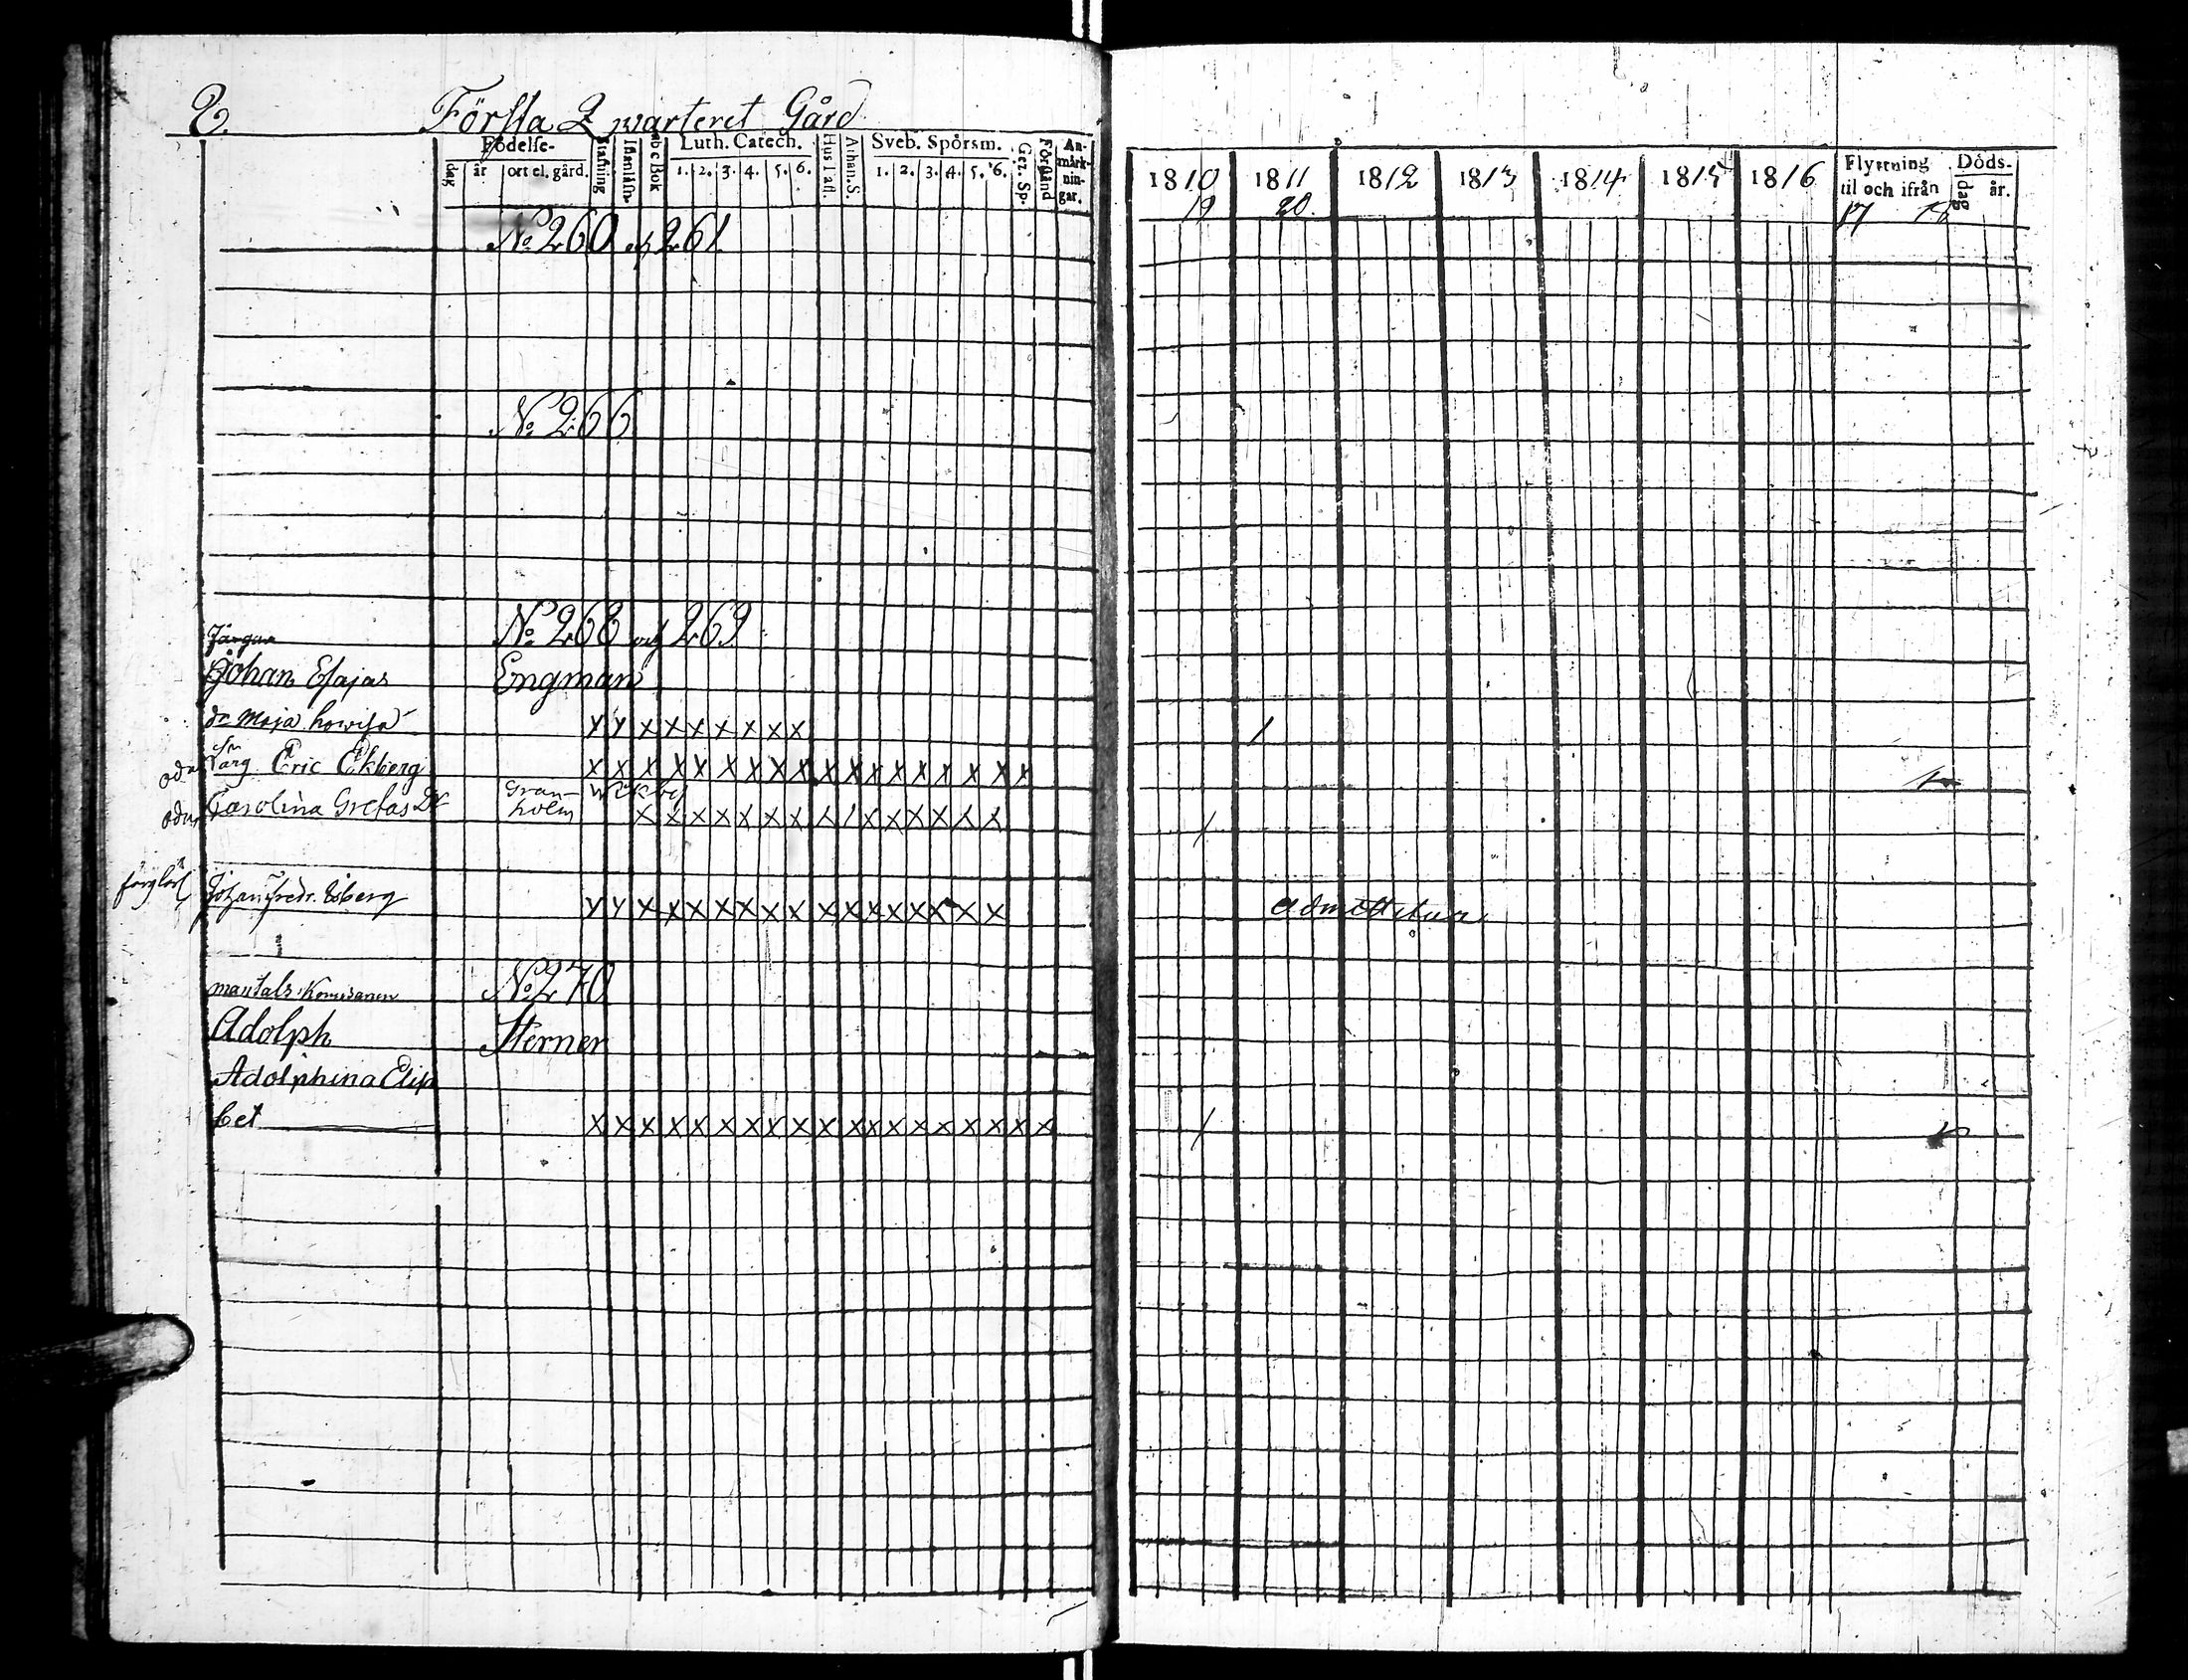 8. Första Qwarteret Gård
Födelse-
dag år ort el. gård.
Stafning
abc Bok
Luth. Catech.
1. 2. 3. 4. 5. 6.
Hus Tafl.
Athan. S.
Sveb. Spörsm.
1. 2. 3. 4. 5. 6.
Gez. Sp.
Förstånd
An-
märk-
nin-
gar.
1810 1811 1812 1813 1814 1815 1816
19 20.
Flyttning
til och ifrån
17 18
Döds-
dag år.
No 260 och 261
No 266
No 268 och 269
Johan Esajas Engman
dr Maja Lowisa
Eric Ekberg
Carolina Gretas Dr Gran-
holm
Johan Fredr.
admittetur
No 270
Adolph Sterner
Adolphina Elisa
bet